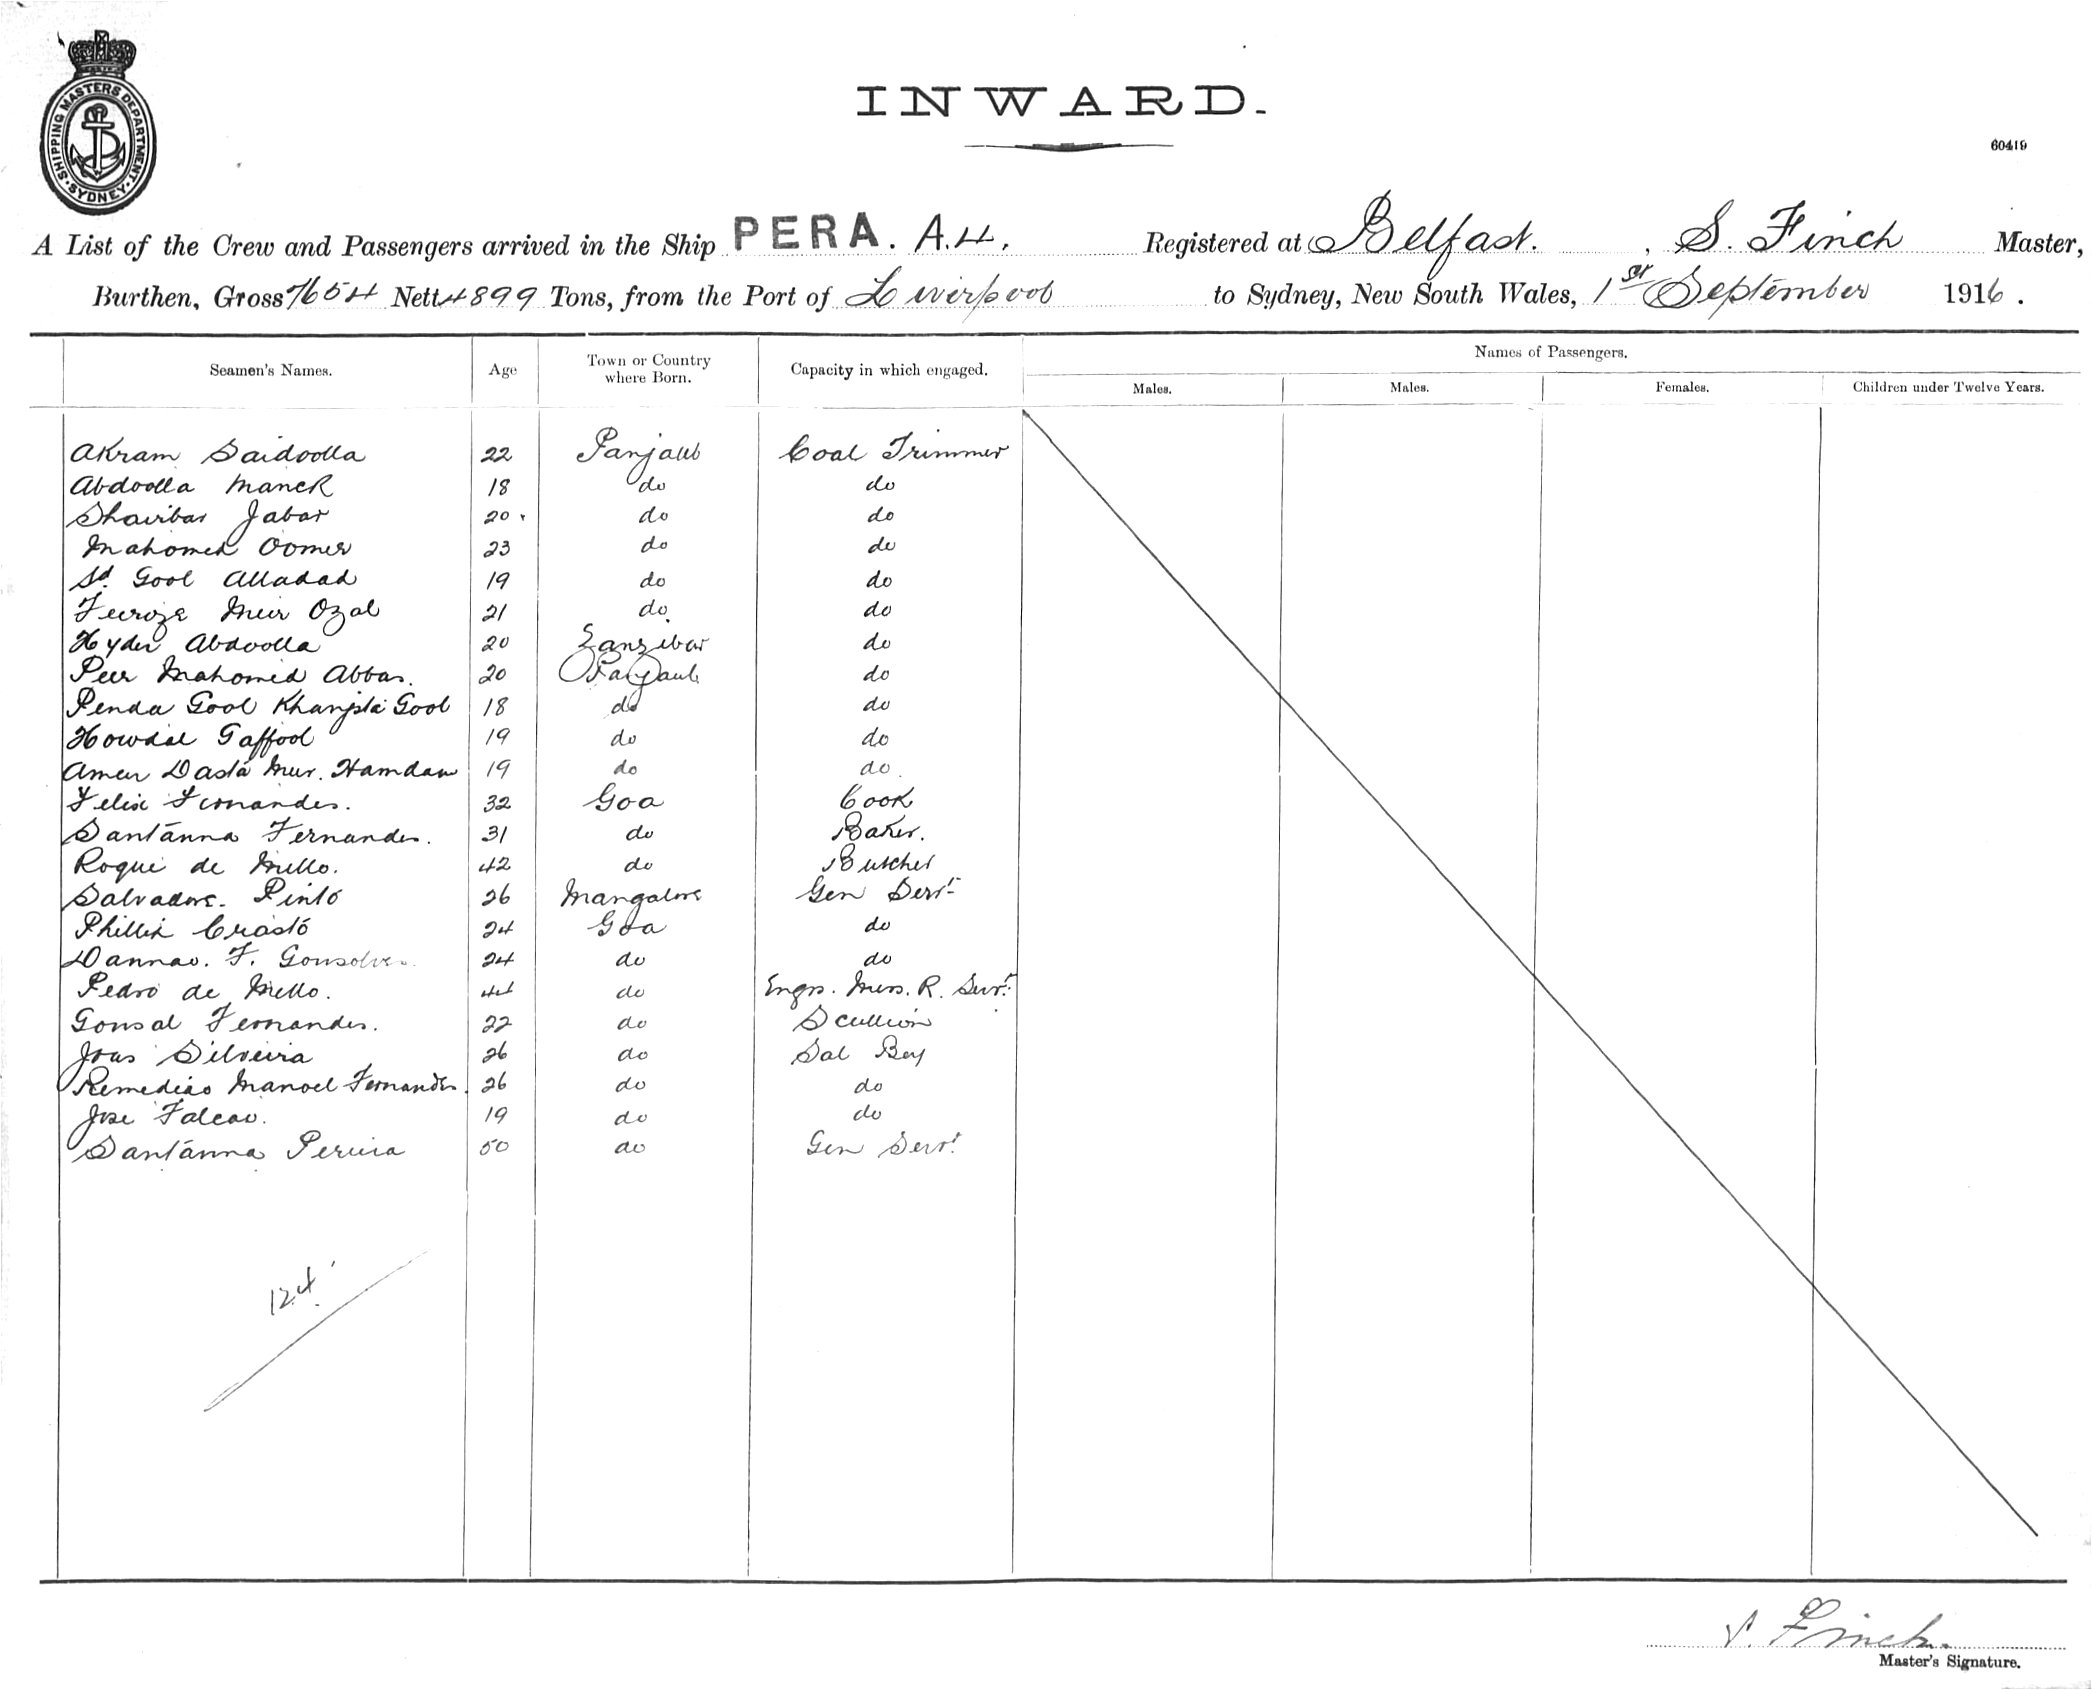 SHIPPING MASTERS DEPARTMENT
SYDNEY
INWARD.
60419
A List of the Crew and Passengers arrived in the Ship PERA. A.H. Registered at Belfast. , S. Finch Master,
Burthen, Gross 7654 Nett 4899 Tons, from the Port of Liverpool to Sydney, New South Wales, 1st September 1916.
Names of Passengers.
Seamen's Names. Age Town or Country where Born. Capacity in which engaged. Males. Males. Females. Children under Twelve Years.
Akram Saidoolla 22 Panjaub Coal Trimmer
Abdoolla Manck 18 do do
Sharibar Jabar 20 do do
Mahomed Oomer 23 do do
Sd. Gool Alladad 19 do do
Feeroze Meer Ozal 21 do. do
Hyder Abdoolla 20 Zanzibar do
Peer Mahomed Abbas. 20 Panjaub do
Penda Gool Khanjsta Gool 18 do do
Howdal Gaffool 19 do do
Ameer Dasta Mur. Hamdaw 19 do do.
Felix Fernandes. 32 Goa Cook
Santanna Fernandes. 31 do Baker.
Roque de Mello. 42 do Butcher
Salvadore. Pinto 26 Mangalore Gen Servt
Phillip Crasto 24 Goa do
F. Gonsolves 24 do do
Pedro de Mello. 44 do Engrs. Mess. R. Servt.
Gonsal Fernandes. 22 do Scullion
Joas Silveira 26 do Sal Boy
Remedias Manoel Fernandes. 26 do do
Jose Falcao. 19 do do
Santanna Pereira 50 do Gen Servt.
124
S. Finch.
Master's Signature.